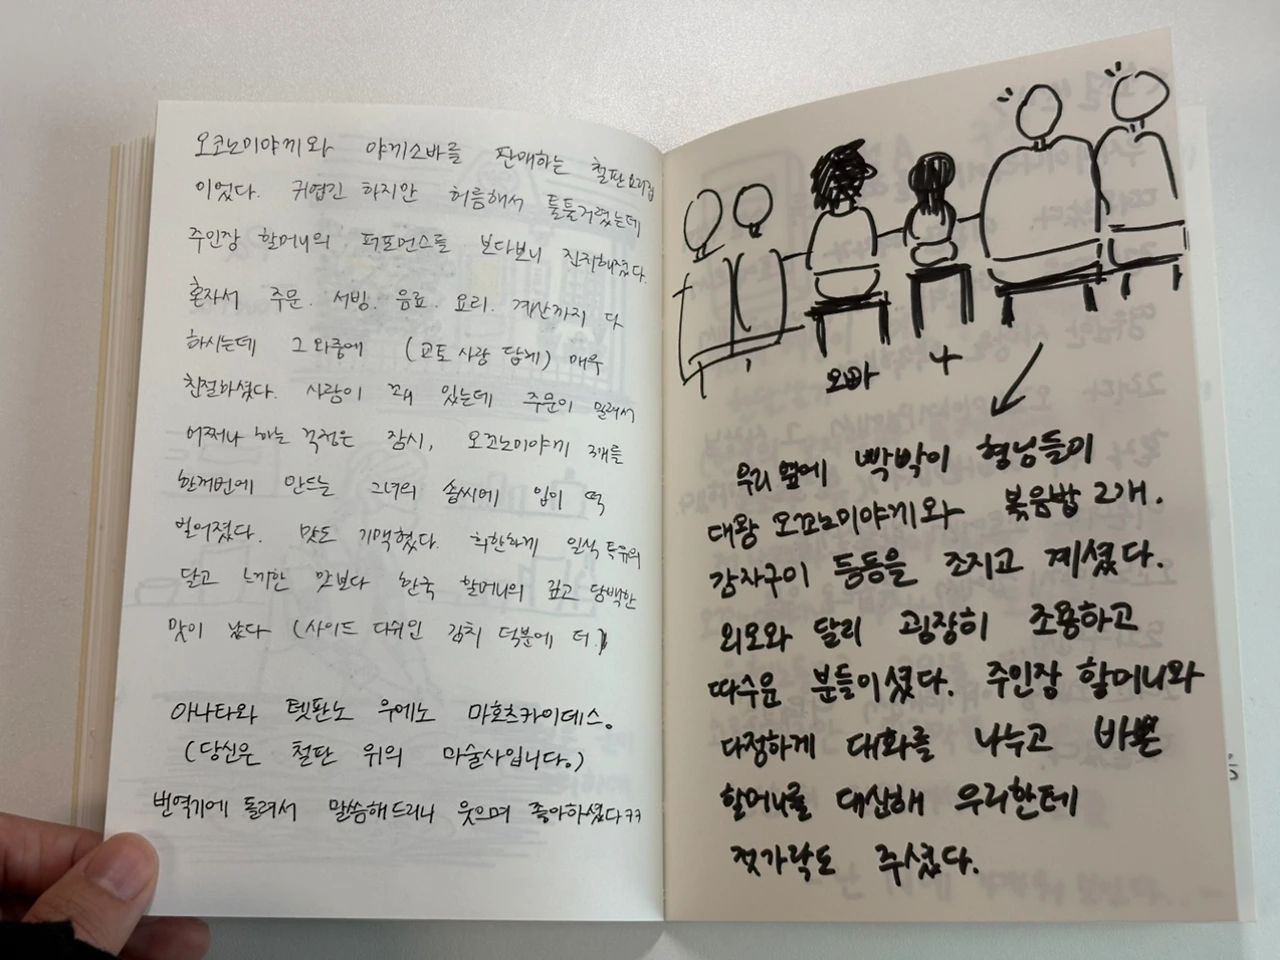 오코노미야끼와 야끼소바를 판매하는 철판요리집
이었다. 귀엽긴 하지만 허름해서 툴툴거렸는데
주인장 할머니의 퍼포먼스를 보다보니 진지해졌다.
혼자서 주문. 서빙. 음료. 요리. 계산까지 다
하시는데 그 와중에 (교토 사람 답게) 매우
친절하셨다. 사람이 꽤 있는데 주문이 밀려서
어쩌나 하는 걱정은 잠시, 오꼬노미야끼 3개를
한꺼번에 만드는 그녀의 솜씨에 입이 떡
벌어졌다. 맛도 기맥혔다. 희한하게 일식 특유의
달고 느끼한 맛보다 한국 할머니의 깊고 담백한
맛이 났다 (사이드 디쉬인 김치 덕분에 더.)
아나타와 텟판노 우에노 마호츠카이데스.
(당신은 철판 위의 마술사입니다.)
번역기에 돌려서 말씀해드리니 웃으며 좋아하셨다ㅋㅋ
오빠 나
우리 옆에 빡빡이 형님들이
대왕 오꼬노미야끼와 볶음밥 2개.
감자구이 등등을 조지고 계셨다.
외모와 달리 굉장히 조용하고
따수운 분들이셨다. 주인장 할머니와
다정하게 대화를 나누고 바쁜
할머니를 대신해 우리한테
젓가락도 주셨다.